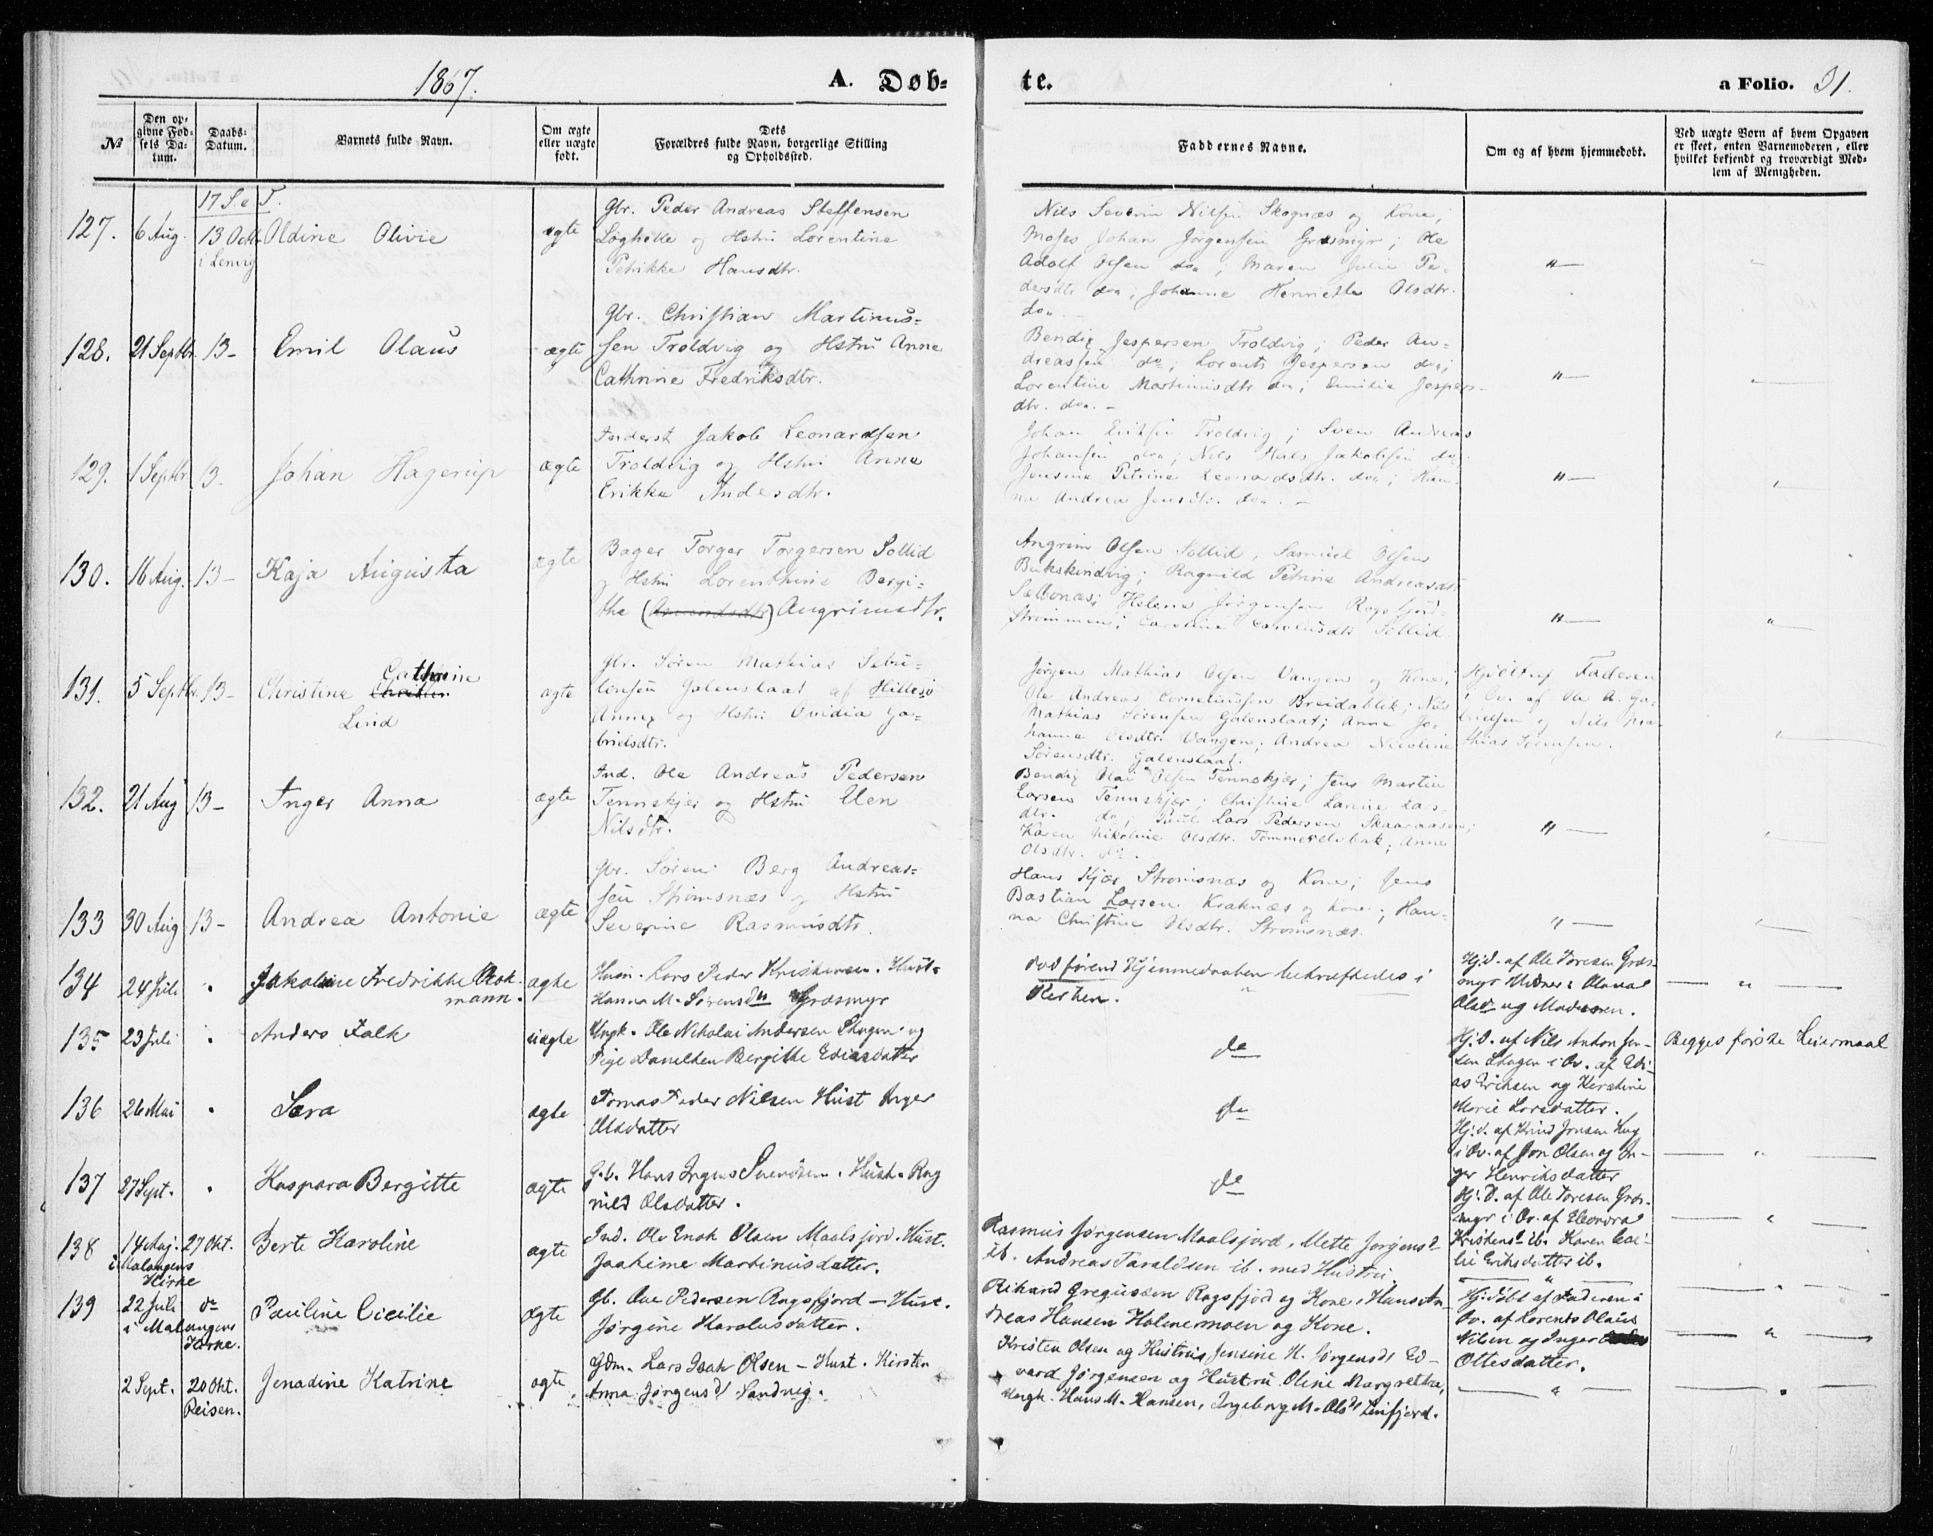 1867. A. Døb-
te. a Folio. 31.
№
Den op-
givne Fød-
sels Da-
tum.
Daabs-
Datum.
Barnets fulde Navn.
Om ægte
eller uægte
født.
Dets
Forældres fulde Navn, borgerlige Stilling
og Opholdssted.
Faddernes Navne.
Om og af hvem hjemmedøbt.
Ved uægte Børn af hvem Opgaven
er skeet, enten Barnemoderen, eller
hvilket bekjendt og troværdigt Med-
lem af Menigheden.
17 S. e. T.
127. 6 Aug. 13 Octbr i Lenvig
Oldine Olivie
ægte
Gbr. Peder Andreas Steffensen
Løghelle og Hstru Lorentine
Petrikke Hansdtr.
Nils Severin Nilsen Skognæs og Kone;
Moses Johan Jörgensen Græsmyr; Ole
Adolf Olsen do; Maren Julie Pe-
dersdtr do; Johanne Henriette Olsdtr.
do.
128. 21 Septbr. 13 -
Emil Olaus
ægte
Gbr. Christian Martinus-
sen Troldvig og Hstru Anne
Cathrine Fredriksdtr.
Bendig Jespersen Troldvig; Peder An-
dreassen do; Lorents Jespersen do;
Lorentine Martinusdtr do; Emilie Jespers-
dtr. do. -
129. 1 Septbr. 13.
Johan Hagerup
ægte
Inderst Jakob Leonardsen
Troldvig og Hstru Anne
Erikka Andersdtr.
Johan Eriksen Troldvig; Sven Andreas
Johansen do; Nils Hals Jakobsen do
Jensine Petrine Leonardsdtr. do; Han-
na Andrea Jensdtr. do. -
130. 16 Aug. 13 -
Kaja Augusta
ægte
Bager Torger Torgersen Sollid
og Hstru Lorenthine Bergi-
the (Amundsdtr) Angrimsdtr.
Angrim Olsen Sollid, Samuel Olsen
Bukskindvig; Ragnild Petrine Andreasdtr
Selbonæs; Helene Jörgensen Rossfjord-
Strømmen; Caroline Carolusdtr Sollid
131. 5 Septbr. 13 -
Christine Cathrine
Lind
ægte
Gbr. Sören Mathias Sebu-
lonsen Galenslaat af Hillesö
Annex og Hstru Ovidia Ga-
brielsdtr.
Jørgen Mathias Olsen Vangen og Kone;
Ole Andreas Corneliussen Breidablik; Nils
Mathias Sørensen Galenslaat; Anne Jo-
hanna Olsdtr. Vangen; Andrea Nicoline
Sørensdtr. Galenslaat.
Hjdöbt af Faderen
i Ov. af Ole A. Ga-
brielsen og Nils Ma-
thias Sørensen.
132. 21 Aug 13 -
Inger Anna
ægte
Ind. Ole Andreas Pedersen
Tennskjer og Hstru Elen
Nilsdtr.
Bendig Olai Olsen Tennskjer; Jens Martin
Larsen Tennskjer; Christine Lanine Lars-
dtr. do; Povl Lars Pedersen Skaaraasen;
Karen Nikoline Olsdtr. Tømmerelvbak; Anne
Olsdtr. do.
133 30 Aug 13 -
Andrea Antonie
ægte
Gbr. Sören Berg Andreas-
sen Strömsnæs og Hstru
Severine Rasmusdtr.
Hans Kjær Strömsnæs og Kone; Jens
Bastian Larsen Kraknæs og Kone; Han-
na Christine Olsdtr. Strömsnæs.
134 24 Juli "
Jakobine Fredrikke Brok-
mann.
ægte
Husm. Lars Peder Kristiansen. Hust.
Hanna M. Sørensdtr Græsmyr
Død førend Hjemmedaaben bekræftedes i
Kirken.
Hj.d. af Ole Toresen Græs-
myr Vidner: Olava
Olsd og Moderen.
135 23 Juli "
Anders Falk
uægte
Ungk. Ole Nikolai Andersen Skogen og
Pige Danelden Bergitte Ediasdatter
do
Hj.D. af Nils Anton Jen-
sen Skogen i Ov. af Edi-
as Eriksen og Kerstine
Marie Larsdatter.
Begges første Leiermaal
136 26 Mai "
Sara
ægte
Tomas Peder Nilsen Hust Inger
Olsdatter
do
Hj.d. af Knud Jonsen
i Ov. af Jon Olsen og In-
ger Henriksdatter
137 27 Sept. "
Kaspara Bergitte
ægte
Gb. Hans Ingens Svendsen. Hust. Rag
nild Olsdatter.
do
Hj.D. af Ole Toresen Græs-
myr i Ov. af Eleonora
Kristensd ib. Karen Ceci-
lie Eriksdatter ib.
138 14 Aug. 27 Okt.
i Malangens
Kirke
Berte Karoline
ægte
Ind. Ole Enok Olsen Maalsjord. Hust.
Joakime Martinusdatter.
Rasmus Jørgensen Maalsjord, Mette Jørgensd
ib. Andreas Taraldsen ib. med Hustru
139 22 Juli do
i Malangens
Kirke.
Pauline Cicilie
ægte
Gb. Ove Pedersen Rossfjord - Hust.
Jørgine Karolusdatter.
Rikard Gregussen Rossfjord og Kone, Hans An-
dreas Hansen Holmemoen og Kone.
Hj.døbt af Faderen i
Ov. af Lorents Olaus
Nilsen og Inger
Ottesdatter.
2 Sept. 20 Okt.
Reisen.
Jenadine Katrine
ægte
Gdm. Lars Isak Olsen - Hust. Kirsten
Anna Jørgensd Sandvig.
Kristen Olsen og Hustru Jensine H. Jørgensd Ed-
vard Jørgensen og Hustru Oline Margrethe,
Ungk. Hans M. Hansen, Ingeborg M. Olsd Leifjord.